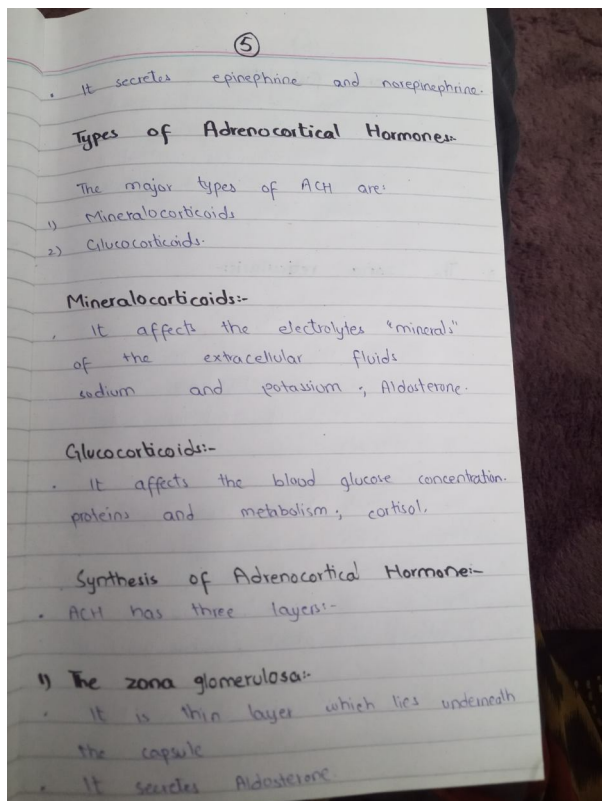 5
. It secretes epinephrine and norepinephrine.
Types of Adrenocortical Hormones:-
The major types of ACH are:
1) Mineralocorticoids
2) Glucocorticoids.
Mineralocorticoids:-
. It affects the electrolytes "minerals"
of the extracellular fluids
sodium and potassium ; Aldosterone.
Glucocorticoids:-
. It affects the blood glucose concentration.
proteins and metabolism ; cortisol.
Synthesis of Adrenocortical Hormone:-
. ACH has three layers:-
1) The zona glomerulosa:-
. It is thin layer which lies underneath
the capsule
. It secretes Aldosterone.